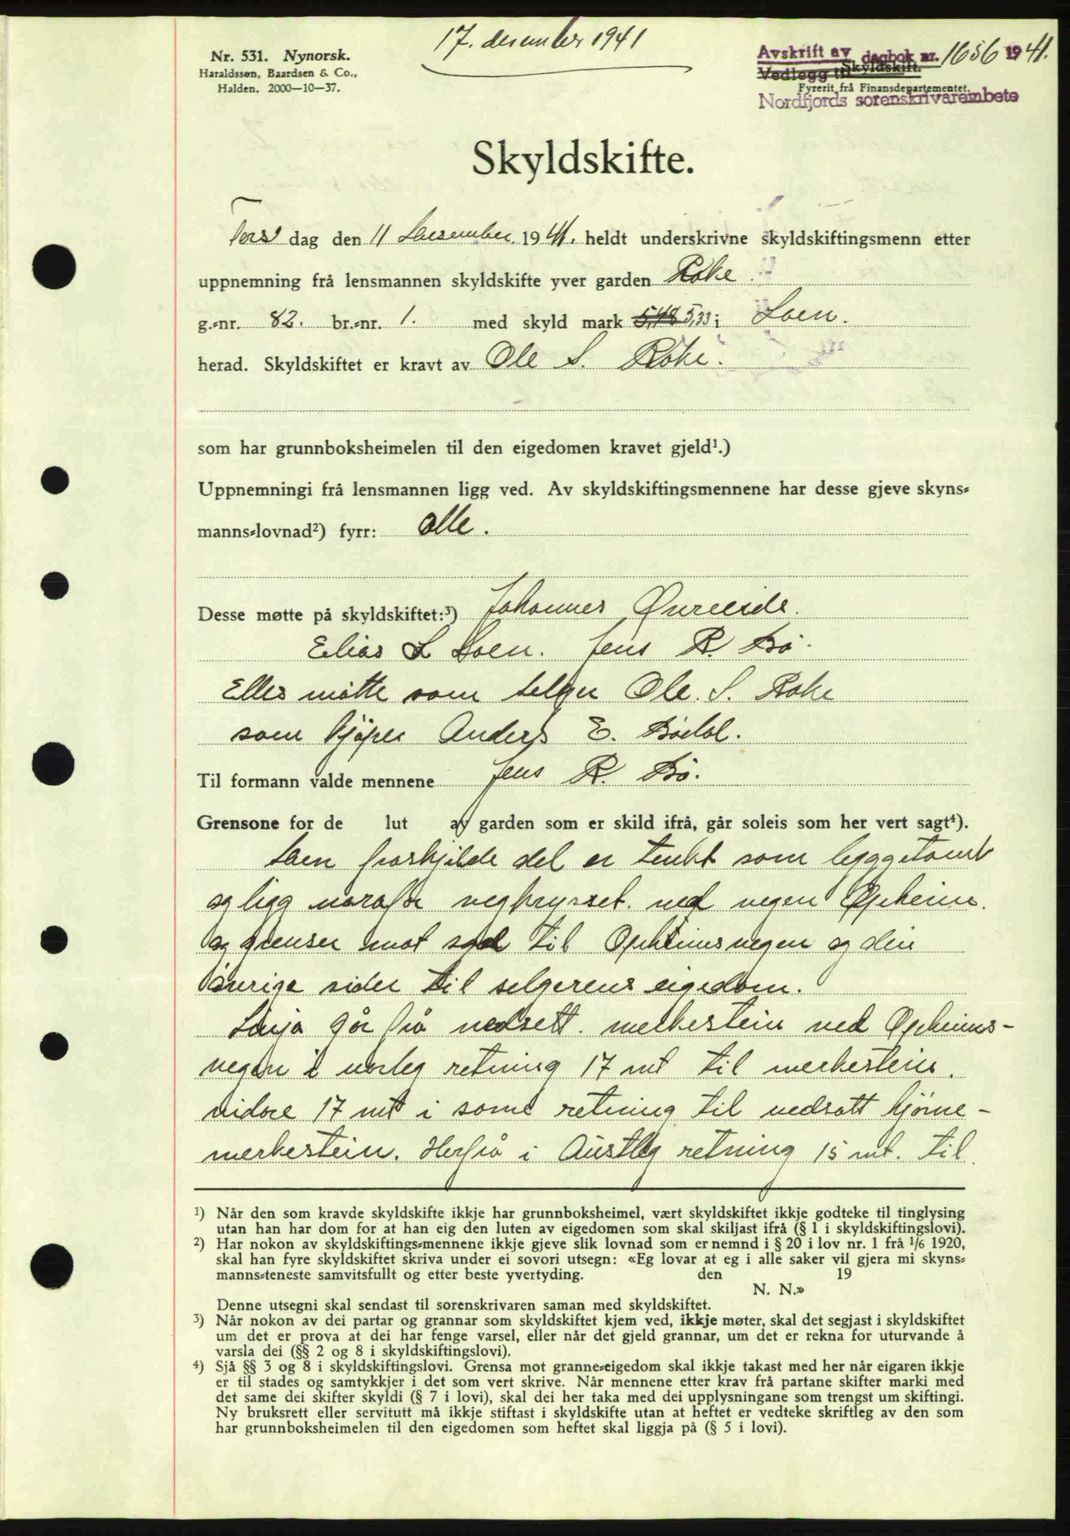 17. desember 1941
Nr. 531. Nynorsk.
Haraldssen, Baardsen & Co.,
Halden. 2000—10—37.
Avskrift av dagbok nr. 1656 1941.
Vedlegg til Skyldskift.
Fyrerit frå Finansdepartementet.
Nordfjords sorenskrivarembete
Skyldskifte.
Tors dag den 11 desember 1941. heldt underskrivne skyldskiftingsmenn etter
uppnemning frå lensmannen skyldskifte yver garden Rake.
g.-nr. 82. br.-nr. 1. med skyld mark 5,48 5,33 i Loen.
herad. Skyldskiftet er kravt av Ole S. Rake.
som har grunnboksheimelen til den eigedomen kravet gjeld¹.)
Uppnemningi frå lensmannen ligg ved. Av skyldskiftingsmennene har desse gjeve skyns-
manns-lovnad²) fyrr: Alle.
Desse møtte på skyldskiftet:³) Johannes Øvreeide.
Elias L Loen. Jens R. Bø.
Elles møtte som seljer Ole. S. Rake
som kjøper Anders E. Bødal.
Til formann valde mennene Jens R. Bø.
Grensone for de lut av garden som er skild ifrå, går soleis som her vert sagt⁴).
Den fraskjilde del er tenkt som byggetomt
og ligg norafor vegkrysset ved vegen Opheim.
og grenser mot syd til Opheimsvegen og dei
øvrige sider til selgerens eigedom.
Linja går frå nedsett merkestein ved Opheims-
vegen i norleg retning 17 mt til merkestein.
vidare 17 mt i same retning til nedsatt hjørne-
merkestein. Herfrå i Austleg retning 15 mt. til
¹) Når den som kravde skyldskifte ikkje har grunnboksheimel, vært skyldskiftet ikkje godteke til tinglysing
utan han har dom for at han eig den luten av eigedomen som skal skiljast ifrå (§ 1 i skyldskiftingslovi).
²) Har nokon av skyldskiftings-mennene ikkje gjeve slik lovnad som er nemnd i § 20 i lov nr. 1 frå 1/6 1920,
skal han fyre skyldskiftet skriva under ei sovori utsegn: «Eg lovar at eg i alle saker vil gjera mi skyns-
manns-teneste samvitsfullt og etter beste yvertyding. den 19
N. N.»
Denne utsegni skal sendast til sorenskrivaren saman med skyldskiftet.
³) Når nokon av dei partar og grannar som skyldskiftet kjem ved, ikkje møter, skal det segjast i skyldskiftet
um det er prova at dei har fenge varsel, eller når det gjeld grannar, um det er rekna for uturvande å
varsla dei (§§ 2 og 8 i skyldskiftingslovi).
⁴) Sjå §§ 3 og 8 i skyldskiftingslovi. Grensa mot granne-eigedom skal ikkje takast med her når eigaren ikkje
er til stades og samtykkjer i det som vert skrive. Når mennene etter krav frå partane skifter marki med
det same dei skifter skyldi (§ 7 i lovi), skal dei her taka med dei upplysningane som trengst um skiftingi.
Ny bruksrett eller servitutt må ikkje stiftast i skyldskifte utan at heftet er vedteke skriftleg av den som
har grunnboksheimelen til den eigedomen som heftet skal liggja på (§ 5 i lovi).